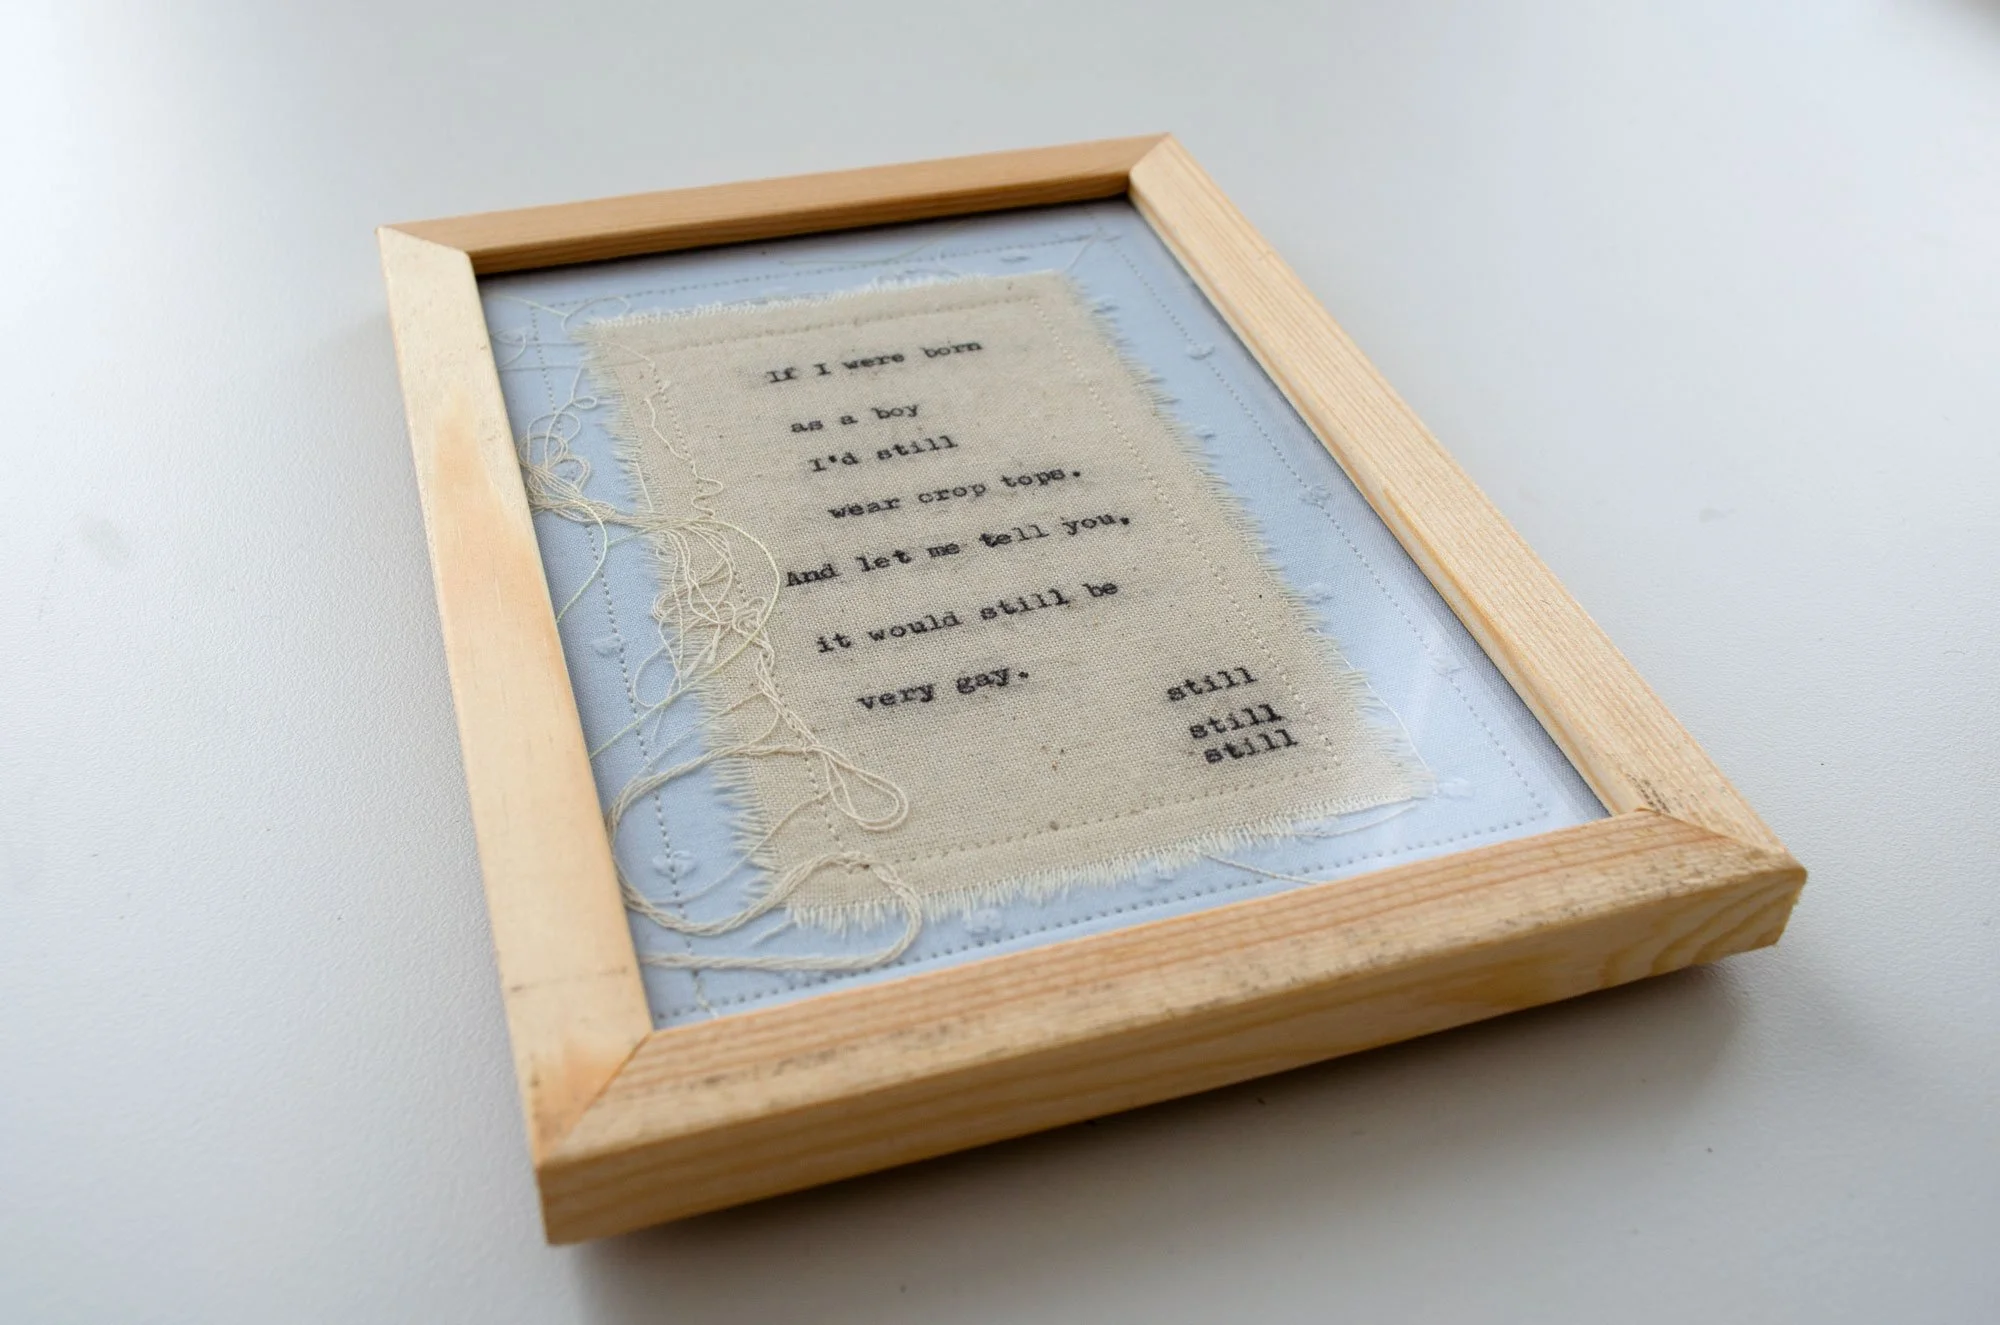 If I were born
as a boy
I'd still
wear crop tops.
And let me tell you,
it would still be
very gay.
still
still
still